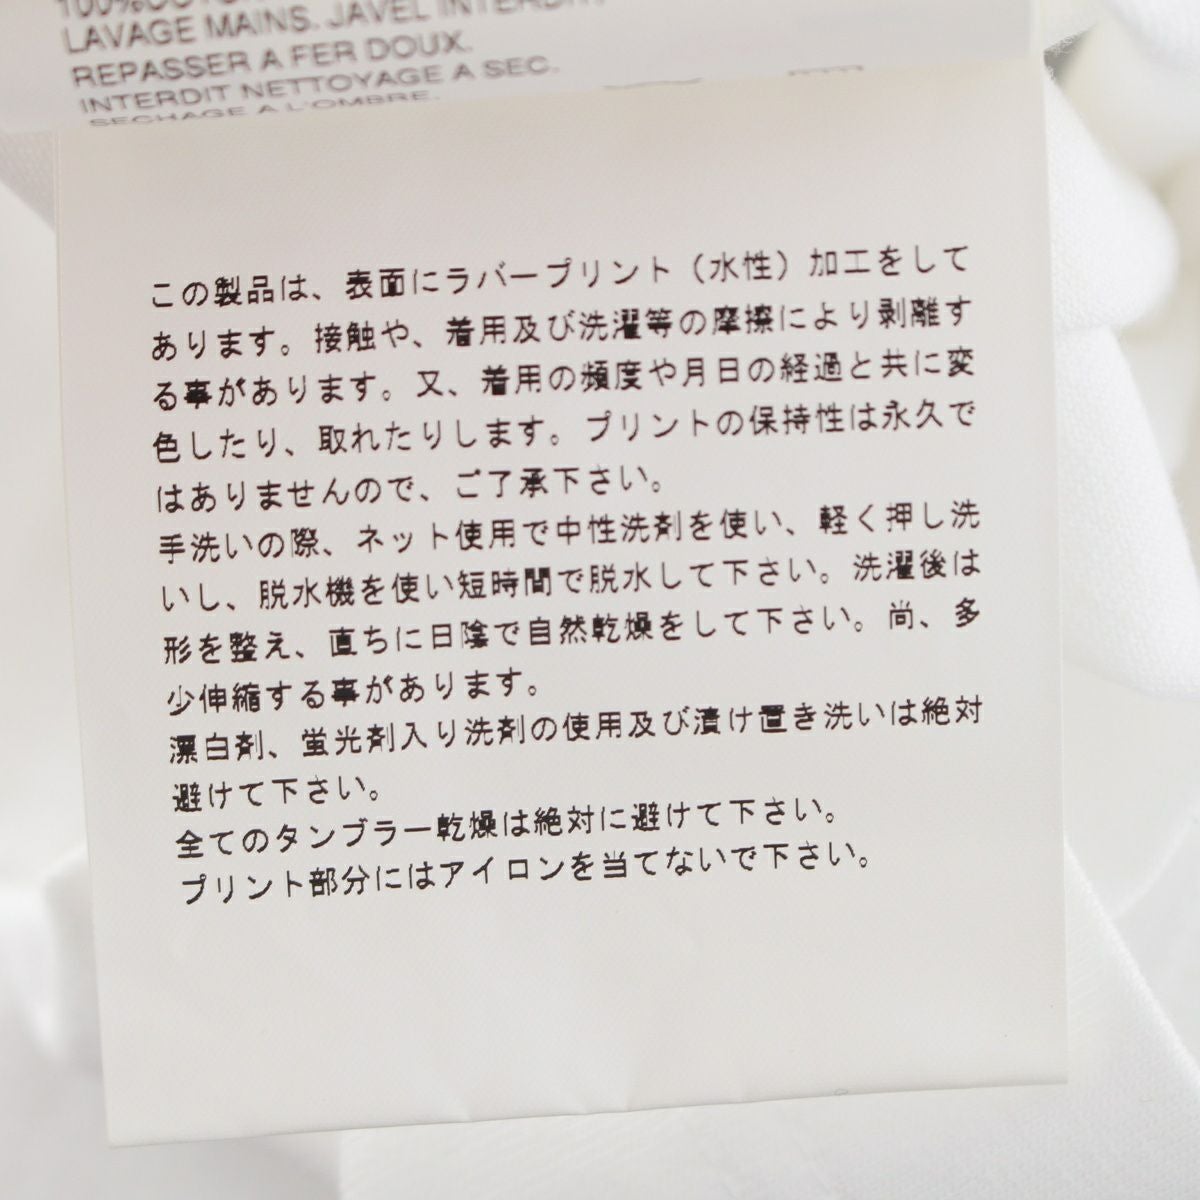 100%COTON
LAVAGE MAINS. JAVEL INTERDIT.
REPASSER A FER DOUX.
INTERDIT NETTOYAGE A SEC.
SECHAGE A L'OMBRE.
この製品は、表面にラバープリント（水性）加工をして
あります。接触や、着用及び洗濯等の摩擦により剥離す
る事があります。又、着用の頻度や月日の経過と共に変
色したり、取れたりします。プリントの保持性は永久で
はありませんので、ご了承下さい。
手洗いの際、ネット使用で中性洗剤を使い、軽く押し洗
いし、脱水機を使い短時間で脱水して下さい。洗濯後は
形を整え、直ちに日陰で自然乾燥をして下さい。尚、多
少伸縮する事があります。
漂白剤、蛍光剤入り洗剤の使用及び漬け置き洗いは絶対
避けて下さい。
全てのタンブラー乾燥は絶対に避けて下さい。
プリント部分にはアイロンを当てないで下さい。